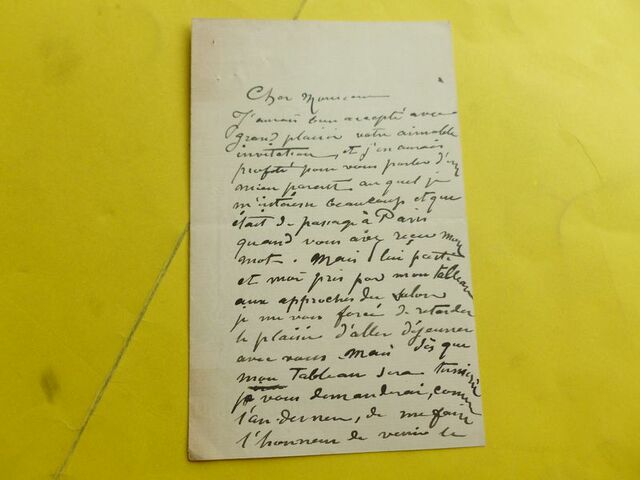 Cher Monsieur
J'aurais bien accepté avec
grand plaisir votre aimable
invitation, et j'en aurais
profité pour vous parler d'un
mien parent auquel je
m'intéresse beaucoup et qui
était de passage à Paris
quand vous avez reçu mon
mot. Mais lui parti
et moi pris par mon tableau
aux approches du Salon
je me vois forcé de retarder
le plaisir d'aller déjeuner
avec vous. Mais dès que
mon Tableau sera terminé
je vous demanderai, comme
l'an dernier, de me faire
l'honneur de venir le